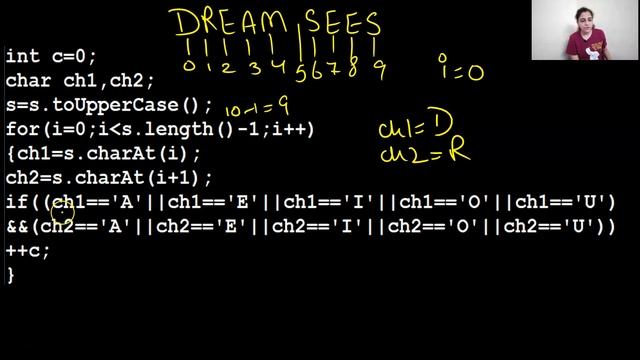 DREAM SEES
0 1 2 3 4 5 6 7 8 9
int c=0;
char ch1,ch2;
i=0
s=s.toUpperCase();
10-1=9
for(i=0;i<s.length()-1;i++)
ch1=D
{ch1=s.charAt(i);
ch2=R
ch2=s.charAt(i+1);
if((ch1=='A'||ch1=='E'||ch1=='I'||ch1=='O'||ch1=='U')
&&(ch2=='A'||ch2=='E'||ch2=='I'||ch2=='O'||ch2=='U'))
++c;
}